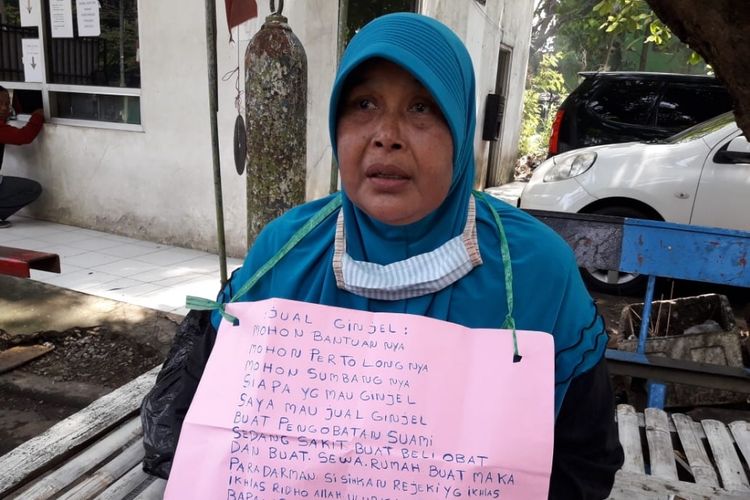 JUAL GINJEL :
MOHON BANTUAN NYA
MOHON PERTOLONG NYA
MOHON SUMBANG NYA
SIAPA YG MAU GINJEL
SAYA MAU JUAL GINJEL
BUAT PENGOBATAN SUAMI
SEDANG SAKIT BUAT BELI OBAT
DAN BUAT. SEWA. RUMAH BUAT MAKA
PARA DARMAN SISIHKAN REJEKI YG IKHLAS
IKHLAS RIDHO ALLAH
BAPA